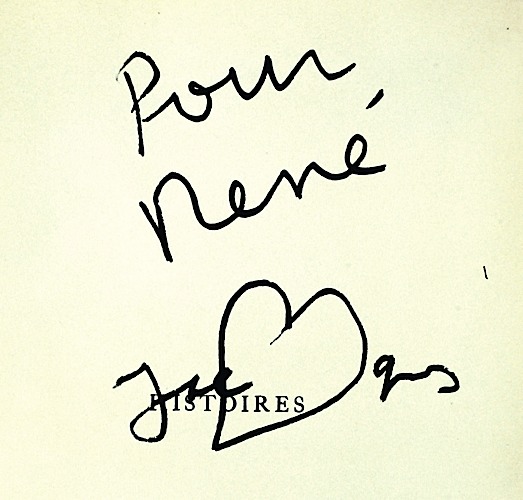 Pour
René
Jac ques
HISTOIRES